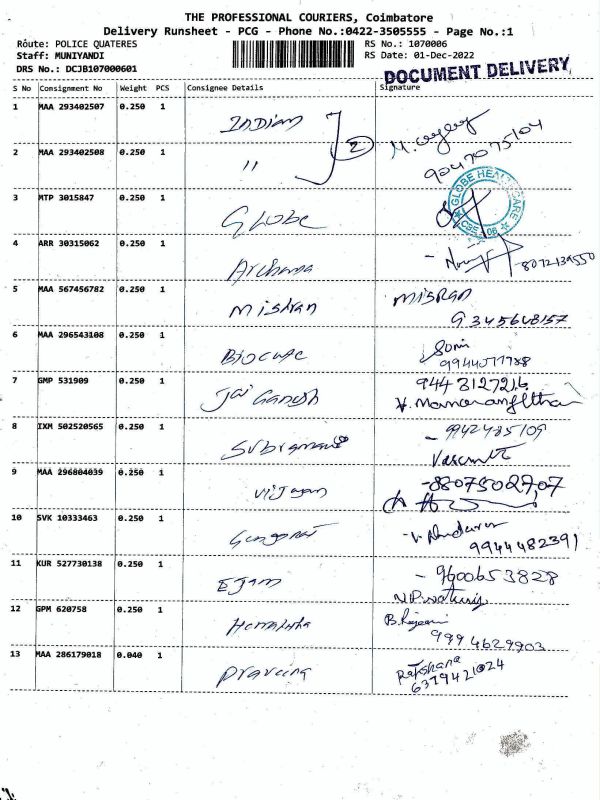 THE PROFESSIONAL COURIERS, Coimbatore
Delivery Runsheet - PCG - Phone No.:0422-3505555 - Page No.:1
Route: POLICE QUATERES
RS No.: 1070006
Staff: MUNIYANDI
RS Date: 01-Dec-2022
DRS No.: DCJB107000601
DOCUMENT DELIVERY
S No Consignment No Weight PCS Consignee Details Signature
1 MAA 293402507 0.250 1 Indian 2
9047075104
2 MAA 293402508 0.250 1 "
3 MTP 3015847 0.250 1 Globe
GLOBE HEALTHCARE
CSE - 06
4 ARR 30315062 0.250 1 Archana
8072139550
5 MAA 567456782 0.250 1 Mishran MISRAN
9345648157
6 MAA 296543108 0.250 1 Biocure Soni
9944077788
7 GMP 531909 0.250 1 Jai Ganesh 9443127216
8 IXM 502520565 0.250 1 9942485109
9 MAA 296804039 0.250 1 Vijayan -8807502707
10 SVK 10333463 0.250 1
9944482391
11 KUR 527730138 0.250 1 - 9600653828
12 GPM 620758 0.250 1 Hemalatha
9994629903
13 MAA 286179018 0.040 1 Praveena Rakshana
6379421024